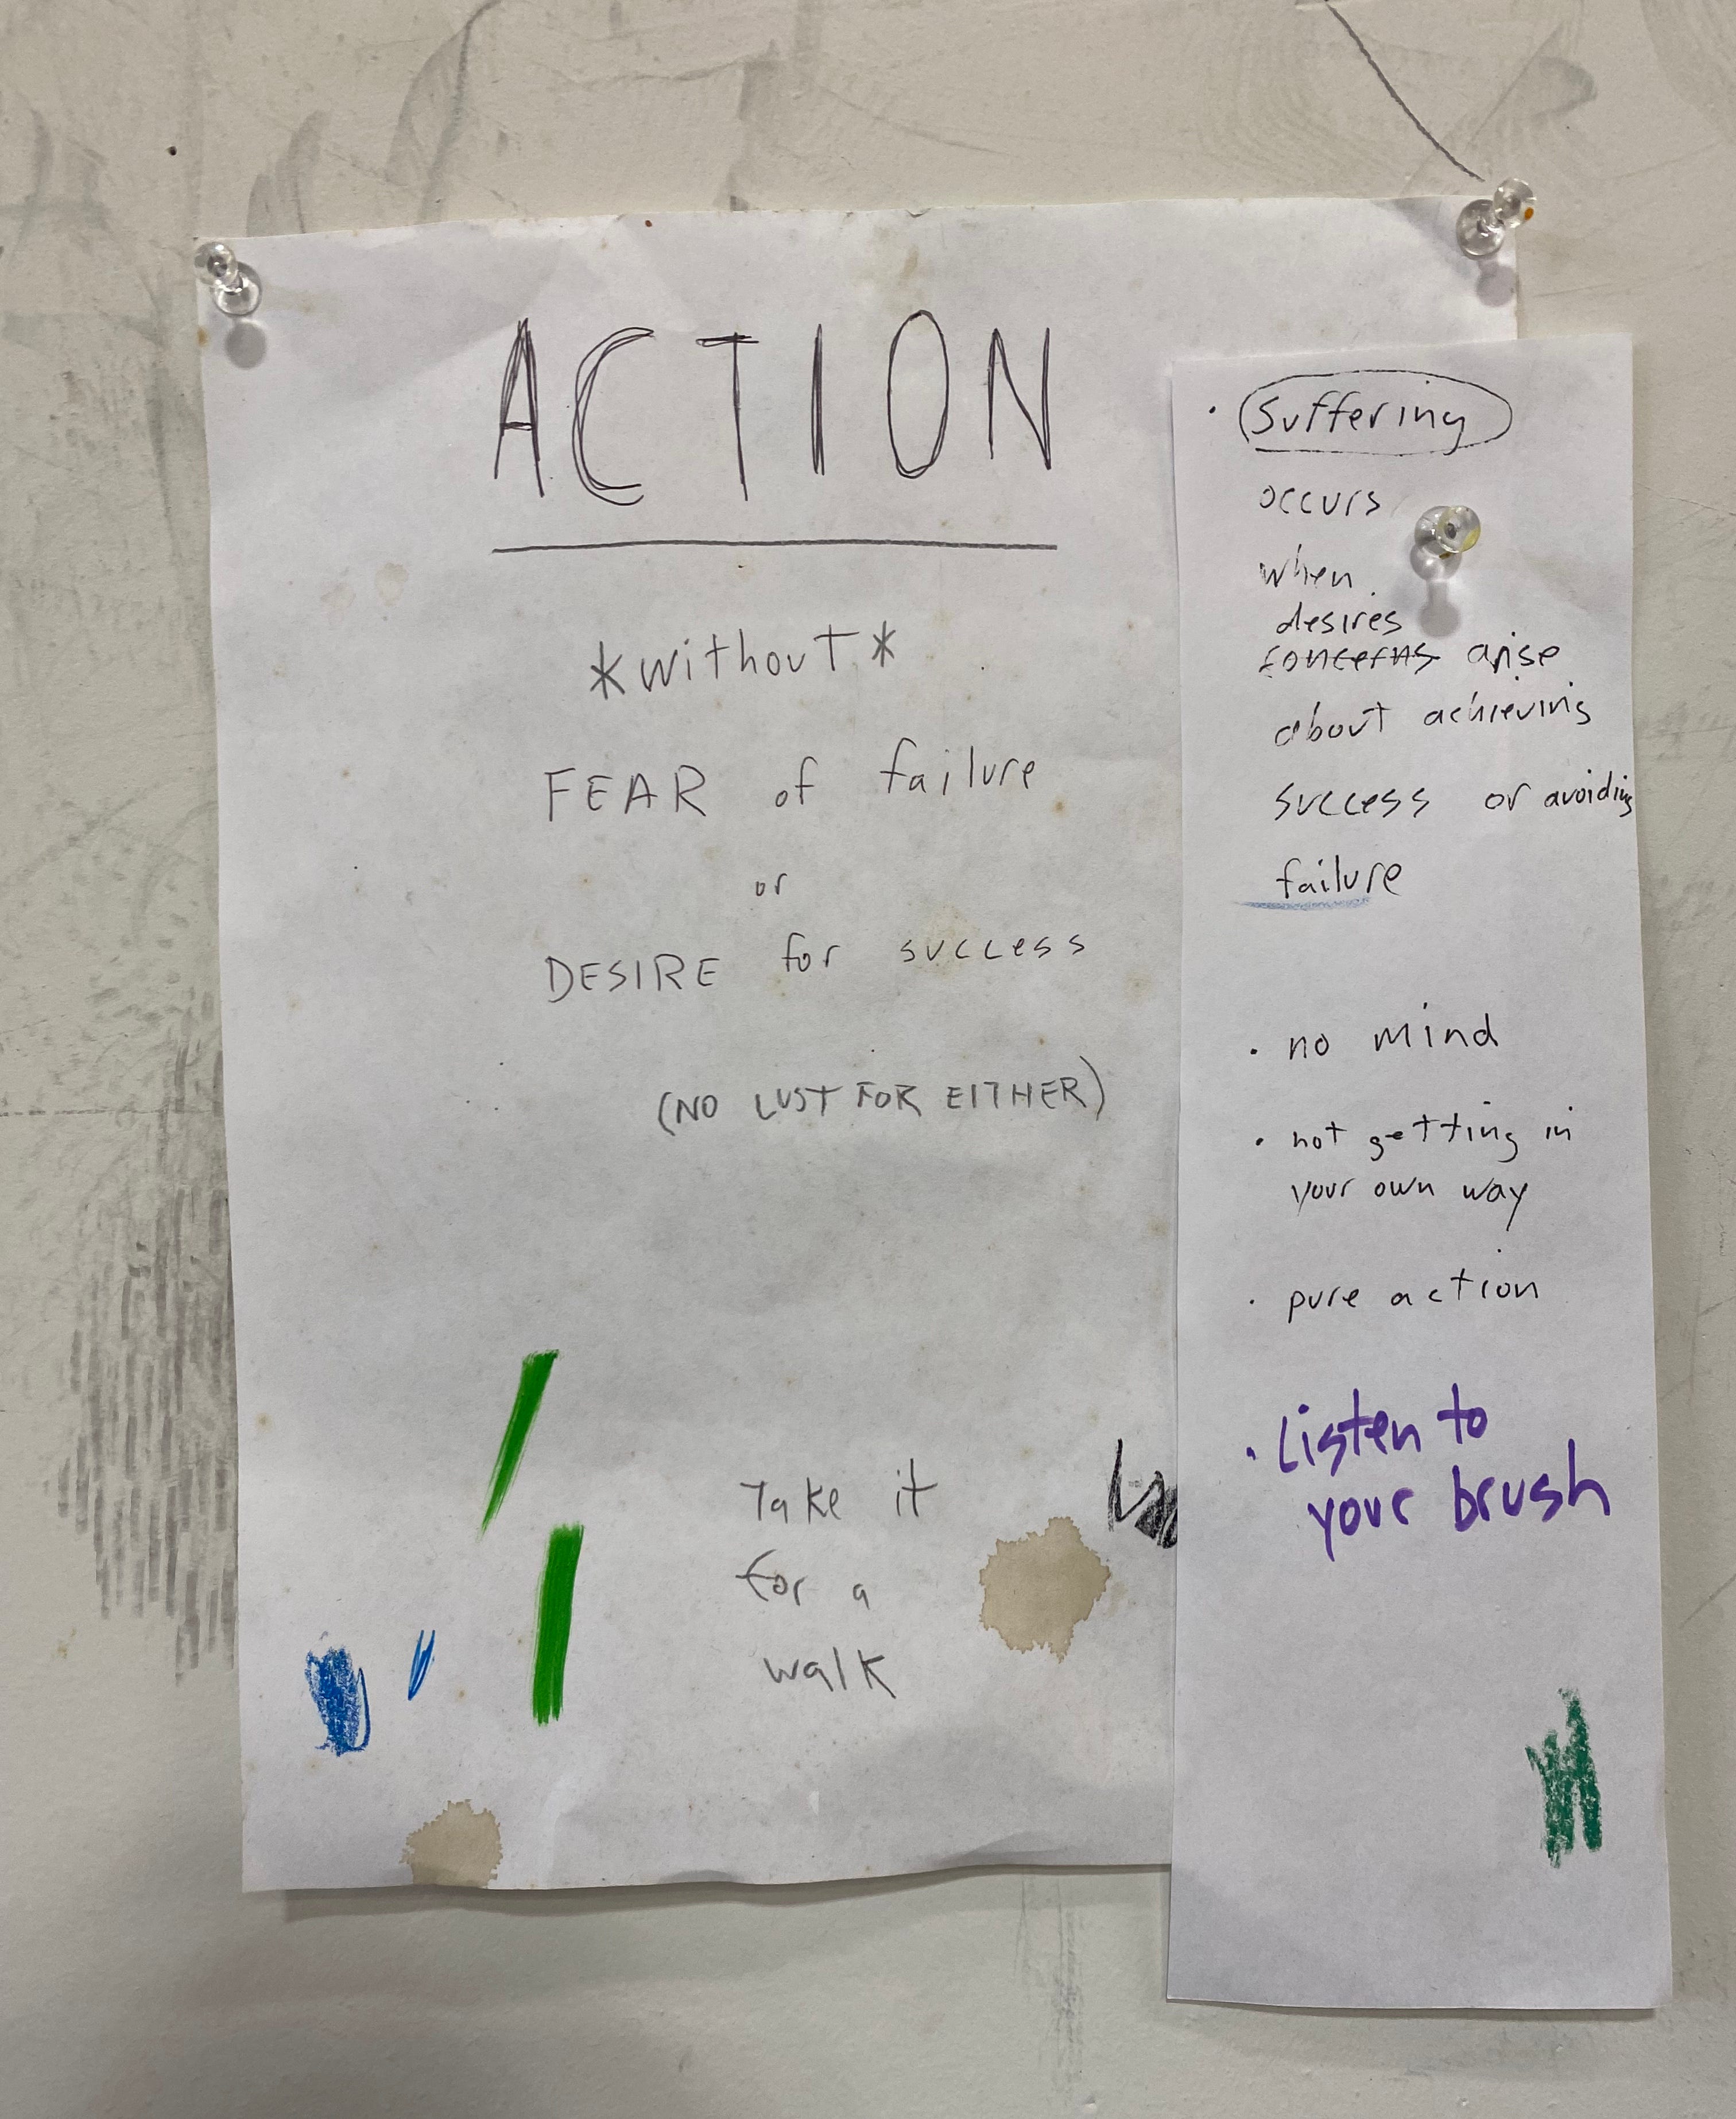 ACTION
*without*
FEAR of failure
or
DESIRE for success
(NO LUST FOR EITHER)
Take it
for a
walk
· Suffering
occurs
when
desires
concerns arise
about achieving
success or avoiding
failure
· no mind
· not getting in
your own way
· pure action
· Listen to
your brush